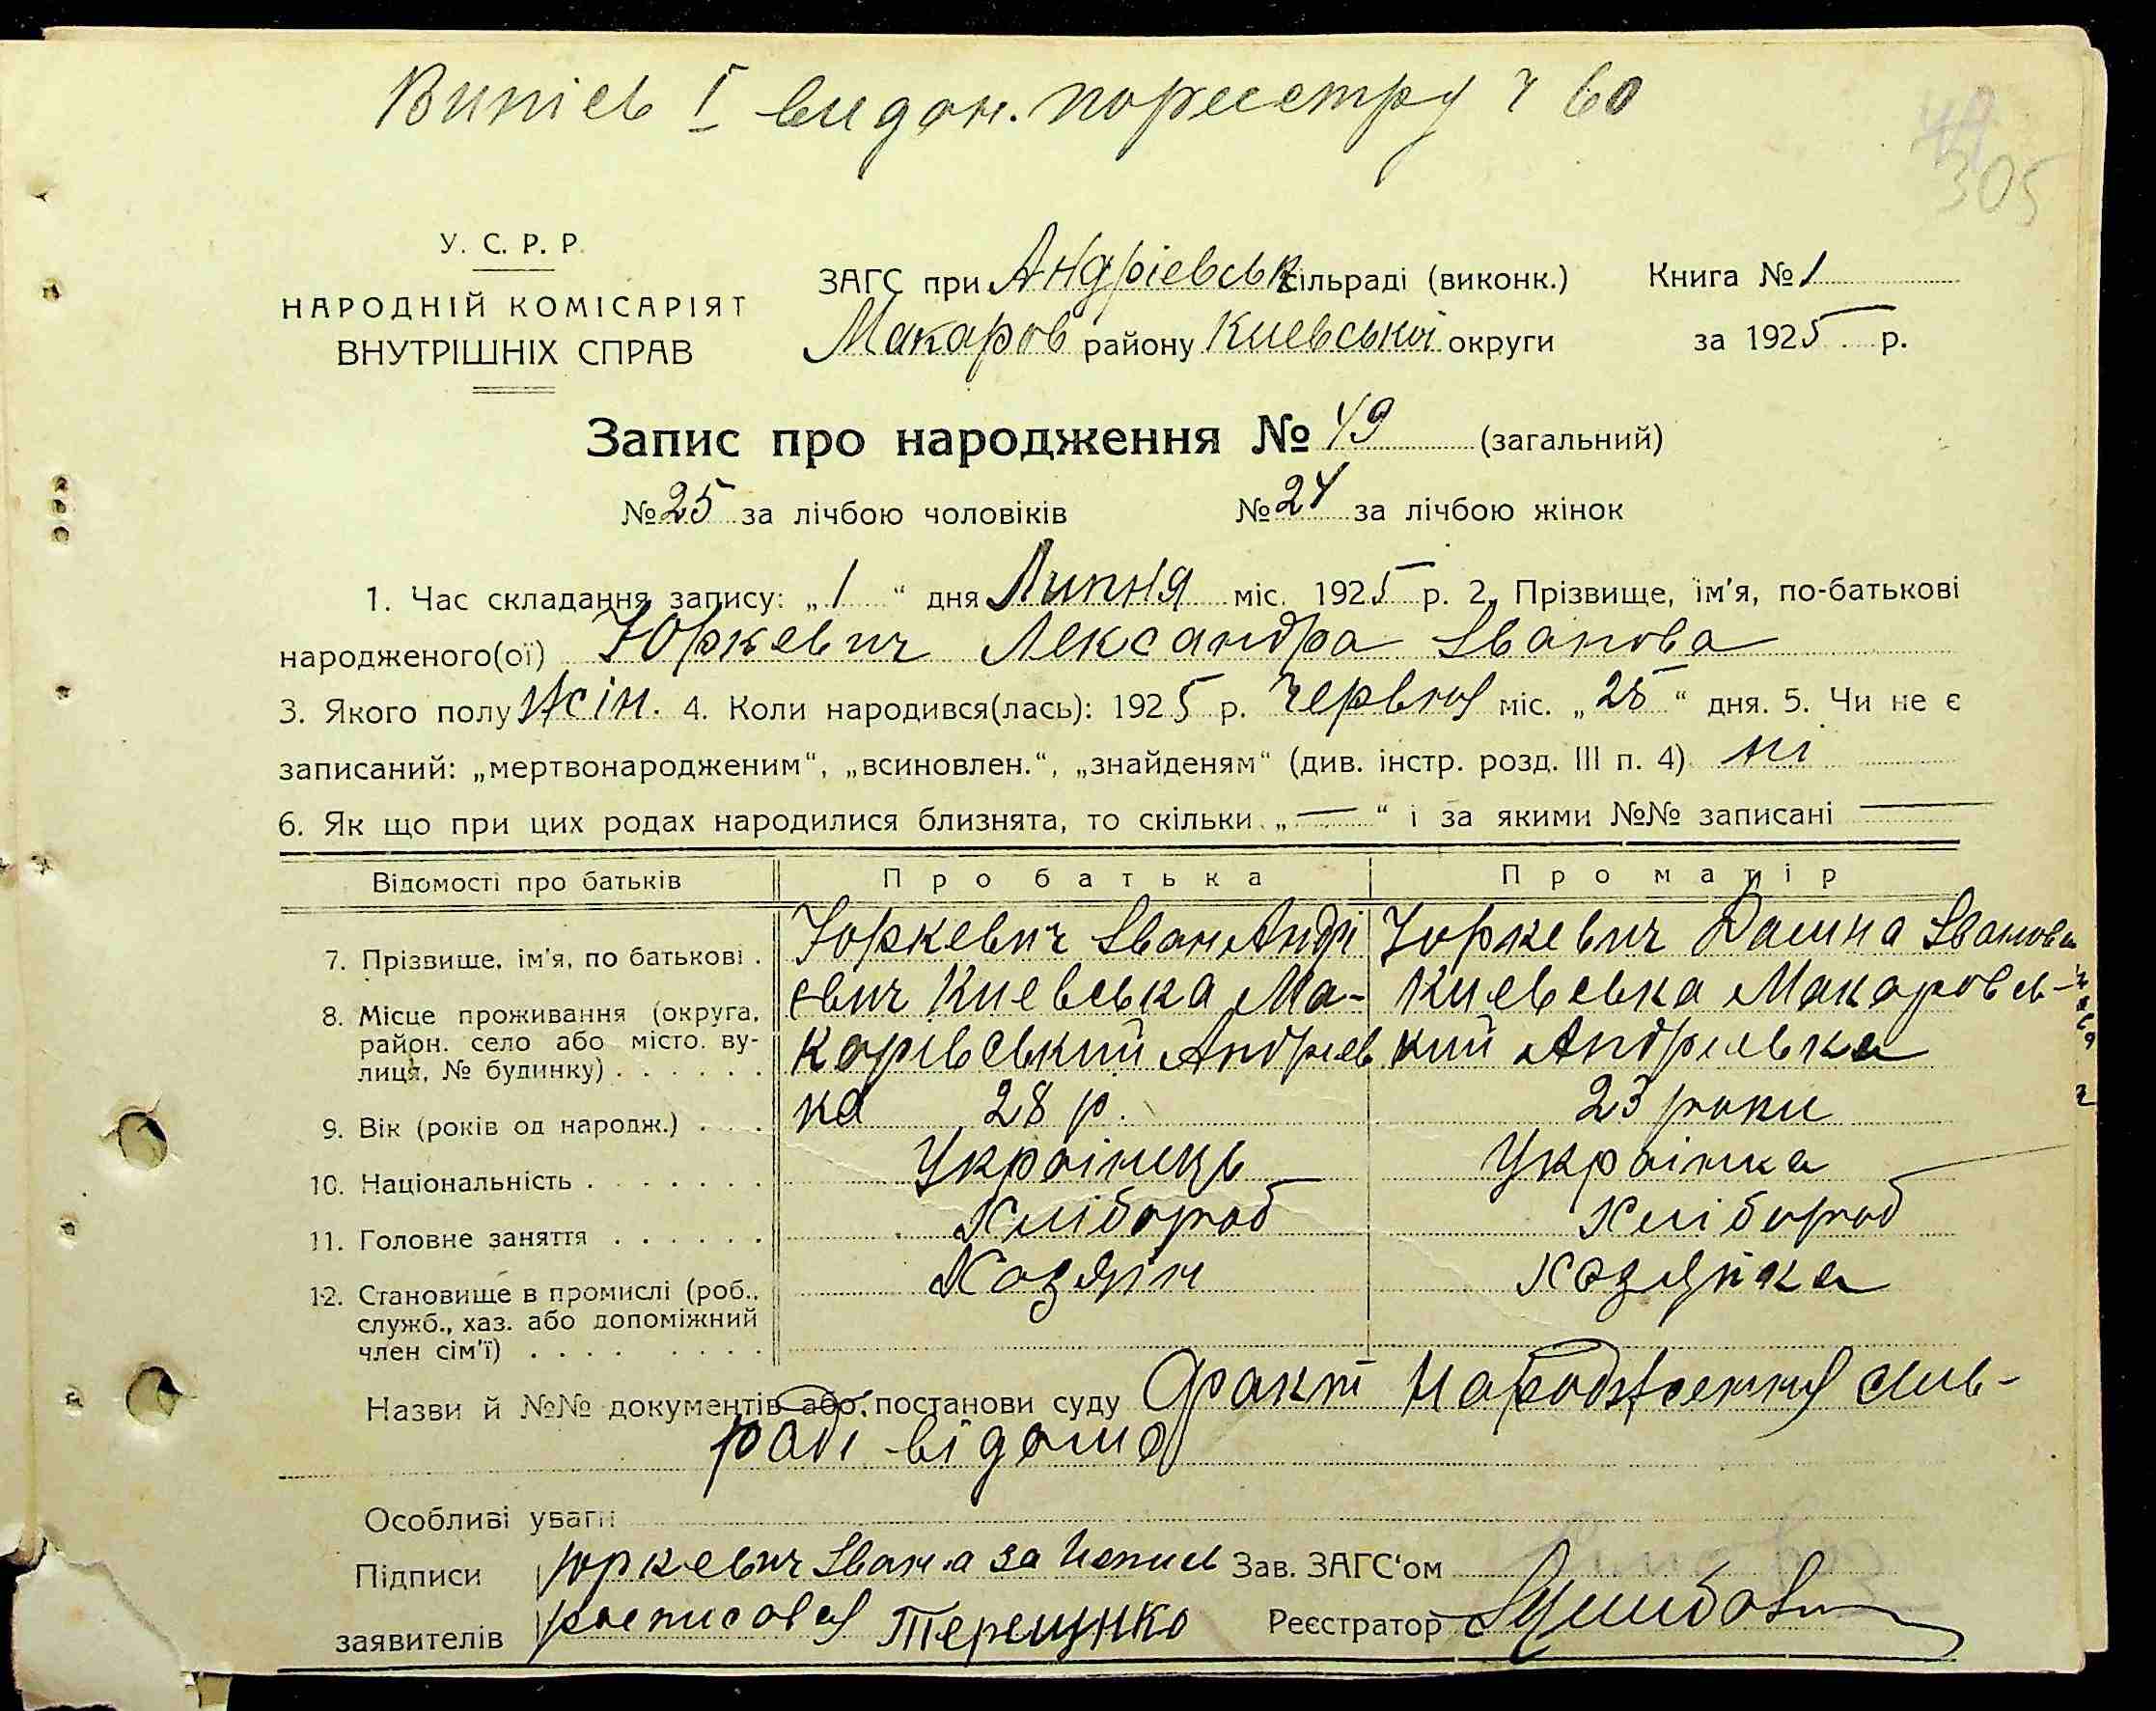 Випісь І видан. пореєстру ч 60
49
305
У. С. Р. Р.
НАРОДНІЙ КОМІСАРІЯТ
ВНУТРІШНІХ СПРАВ
ЗАГС при Андріевськ сільраді (виконк.) Книга № 1
Макаров району Киевської округи за 1925 р.
Запис про народження № 49 (загальний)
№ 25 за лічбою чоловіків № 24 за лічбою жінок
1. Час складання запису: „1“ дня Липня міс. 1925 р. 2. Прізвище, ім'я, по-батькові
народженого(ої) Юркевич Лександра Іванова
3. Якого полу жін. 4. Коли народився(лась): 1925 р. Червня міс. „28“ дня. 5. Чи не є
записаний: „мертвонародженим“, „всиновлен.“, „знайденям“ (див. інстр. розд. III п. 4) ні
6. Як що при цих родах народилися близнята, то скільки „—“ і за якими №№ записані —
Відомості про батьків Про батька Про матір
7. Прізвище, ім'я, по батькові . Юркевич Іван Андрі Юркевич Іванова
8. Місце проживання (округа, євич Киевська Ма- Киевська Макаровсь-
район. село або місто. ву- карівський Андриев кий Андриевка
лиця, № будинку) . . . . . .
9. Вік (років од народж.) . . . ка 28 р. 23 роки
10. Національність . . . . . . . Українець Українка
11. Головне заняття . . . . . . Хлібороб Хлібороб
12. Становище в промислі (роб., Хазяїн Хазяйка
служб., хаз. або допоміжний
член сім'ї) . . . . . . . .
Назви й №№ документів або постанови суду Факт народження силь-
раді відомо
Особливі уваги
Підписи Юркевич Івана за Зав. ЗАГС'ом
заявителів росписався Терещенко Реєстратор